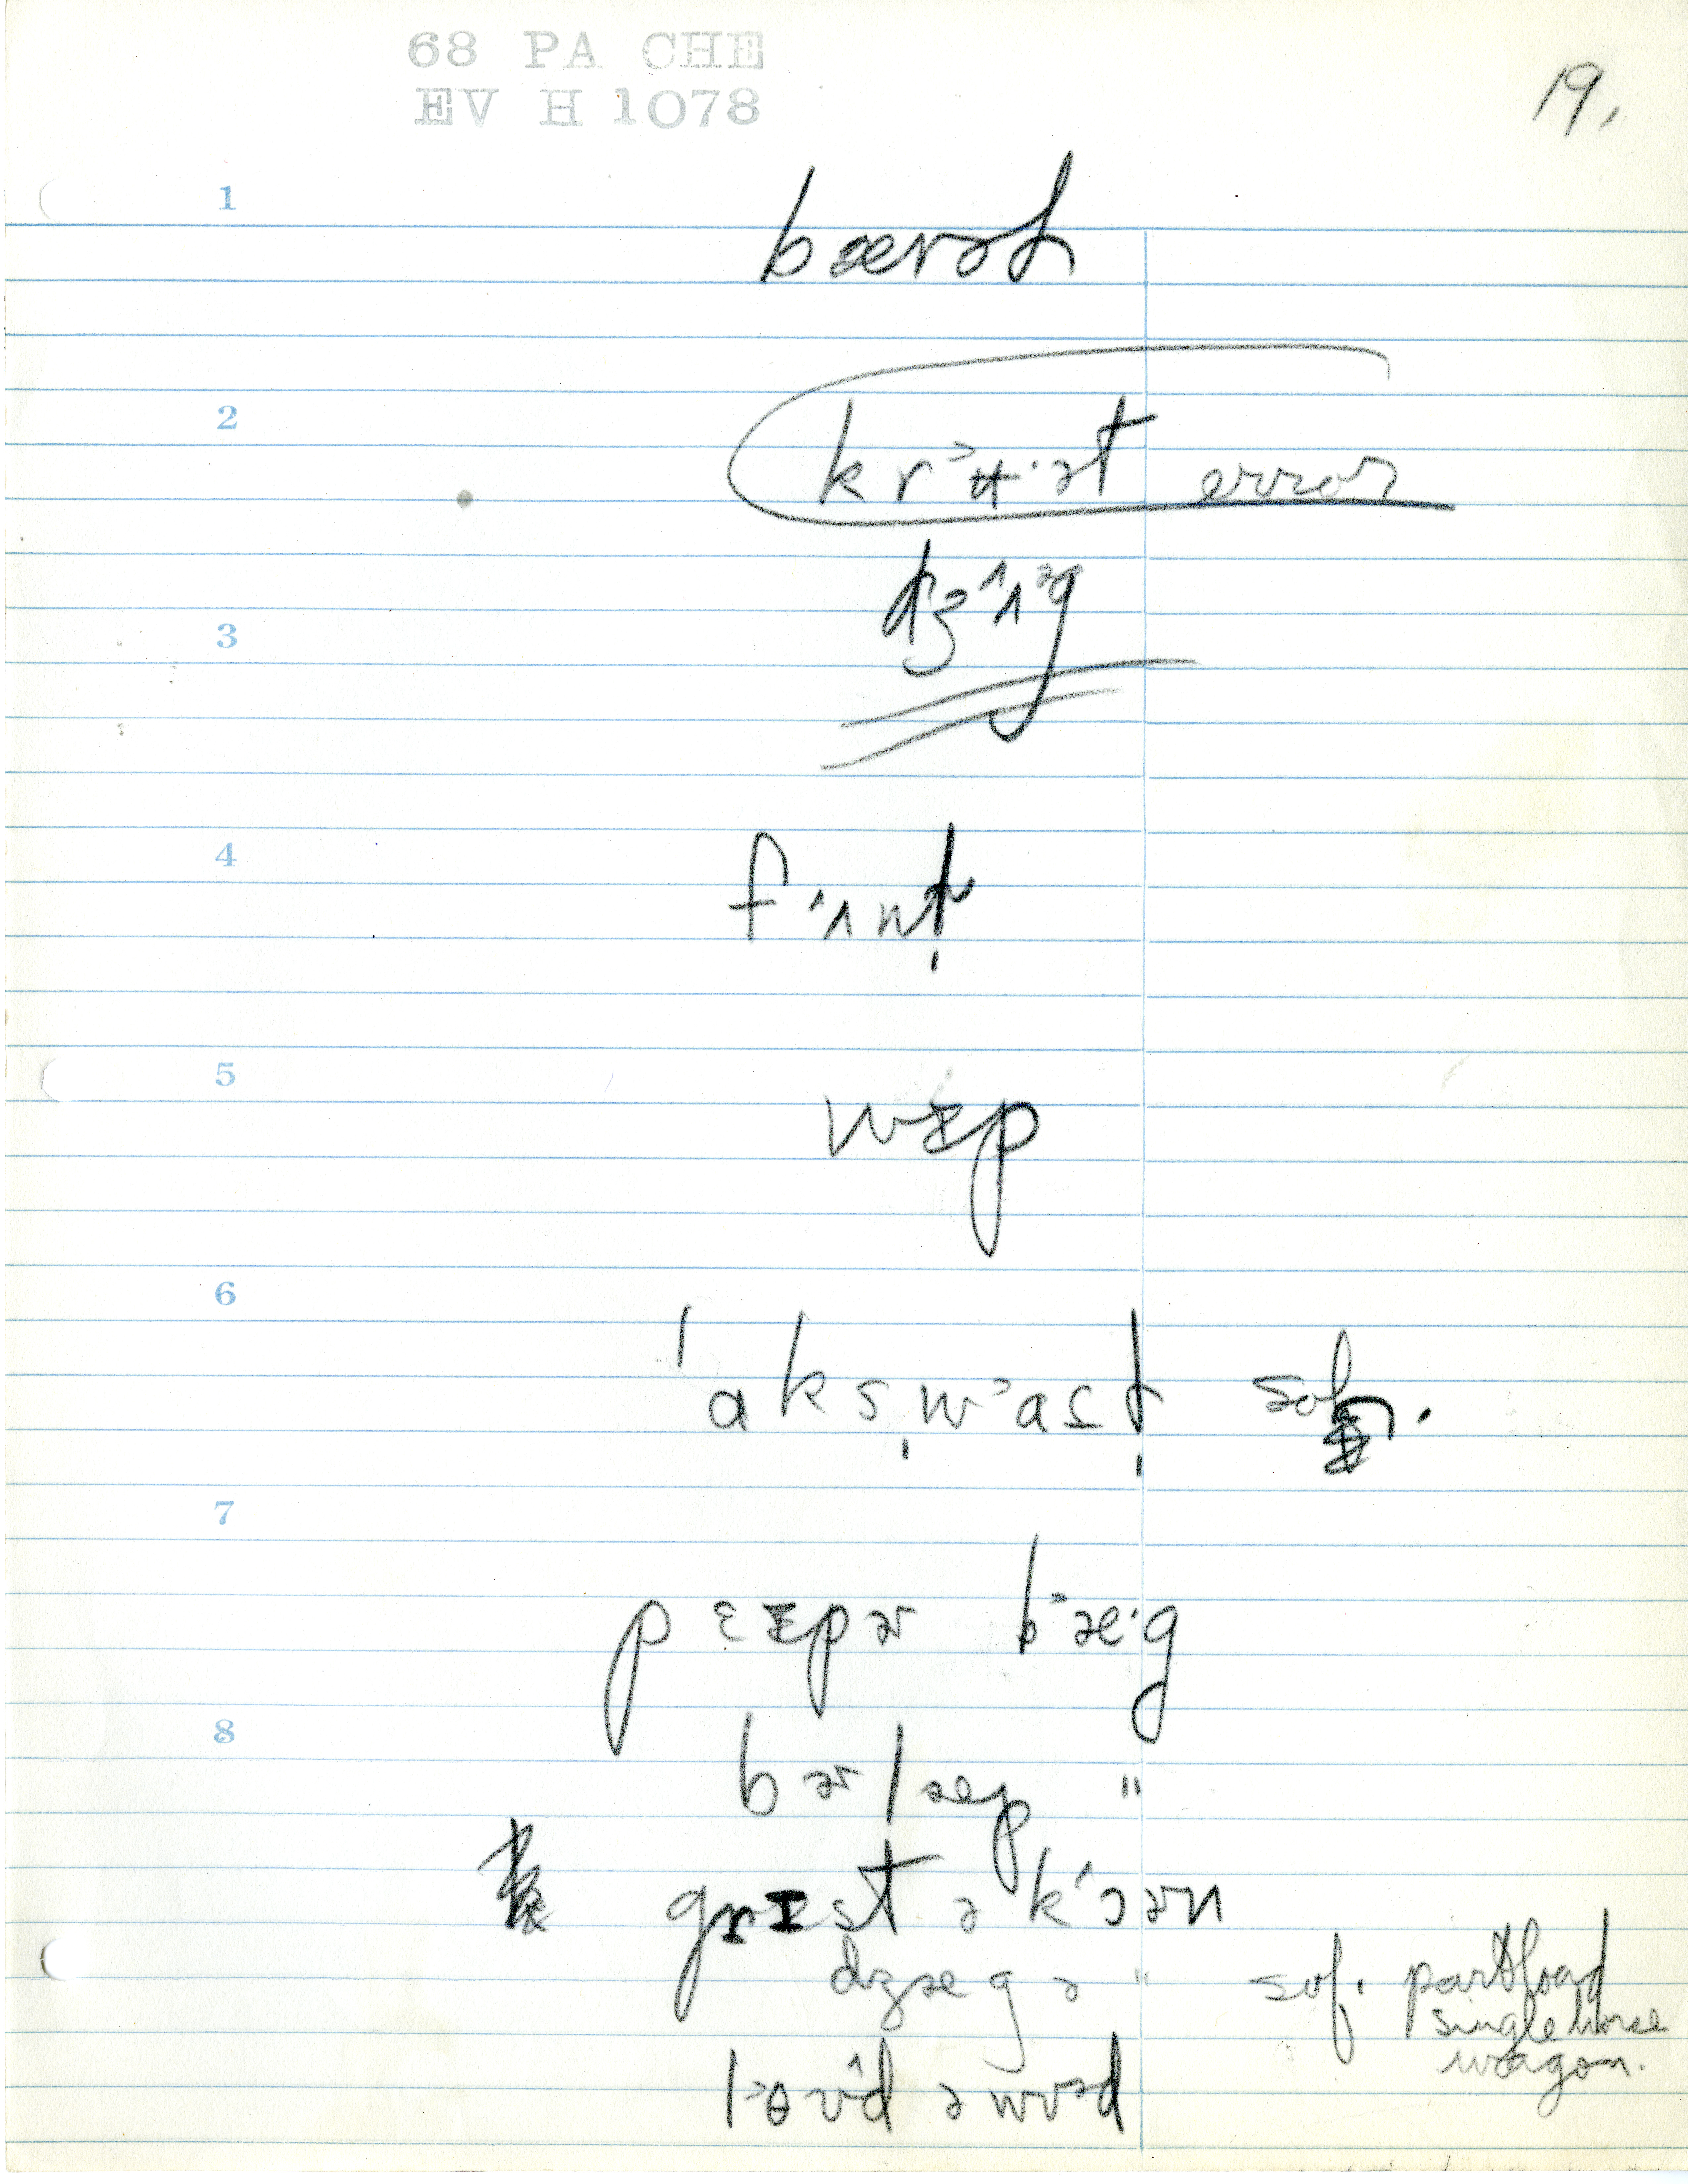 68 PA CHE
EV H 1078
19.
1
bærəl
2
krᵊʉ·ət error
3
dʒ^ʌᵊg
4
f^ʌnt̬
5
wɪp
6
ˈaks̬wᵊast̬
7
pɛɪpɚ bᵊæ·g
8
bɚlæp "
grɪst ə k^ɔɚn
dʒæg ə " sof. part load
single horse
wagon.
lᵊoʊ^d ə wʊd